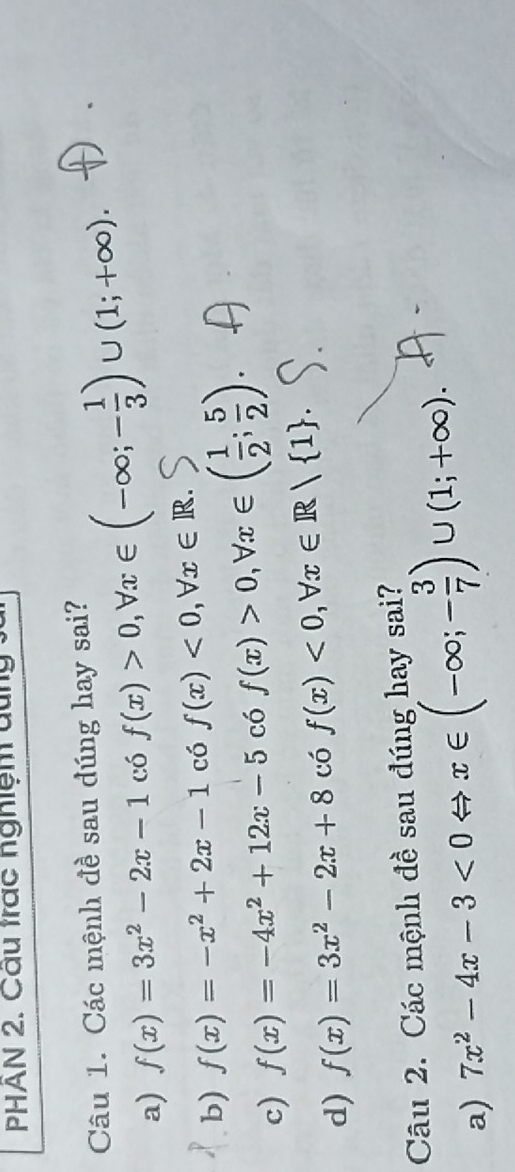 PHẦN 2. Câu trắc nghiệm đúng sai
Câu 1. Các mệnh đề sau đúng hay sai?
a) f(x) = 3x² − 2x − 1 có f(x) > 0, ∀x ∈ (−∞; −1/3) ∪ (1; +∞). Đ.
b) f(x) = −x² + 2x − 1 có f(x) < 0, ∀x ∈ ℝ. S
c) f(x) = −4x² + 12x − 5 có f(x) > 0, ∀x ∈ (1/2; 5/2). Đ
d) f(x) = 3x² − 2x + 8 có f(x) < 0, ∀x ∈ ℝ \ {1}. S.
Câu 2. Các mệnh đề sau đúng hay sai?
a) 7x² − 4x − 3 < 0 ⇔ x ∈ (−∞; −3/7) ∪ (1; +∞). Đ.